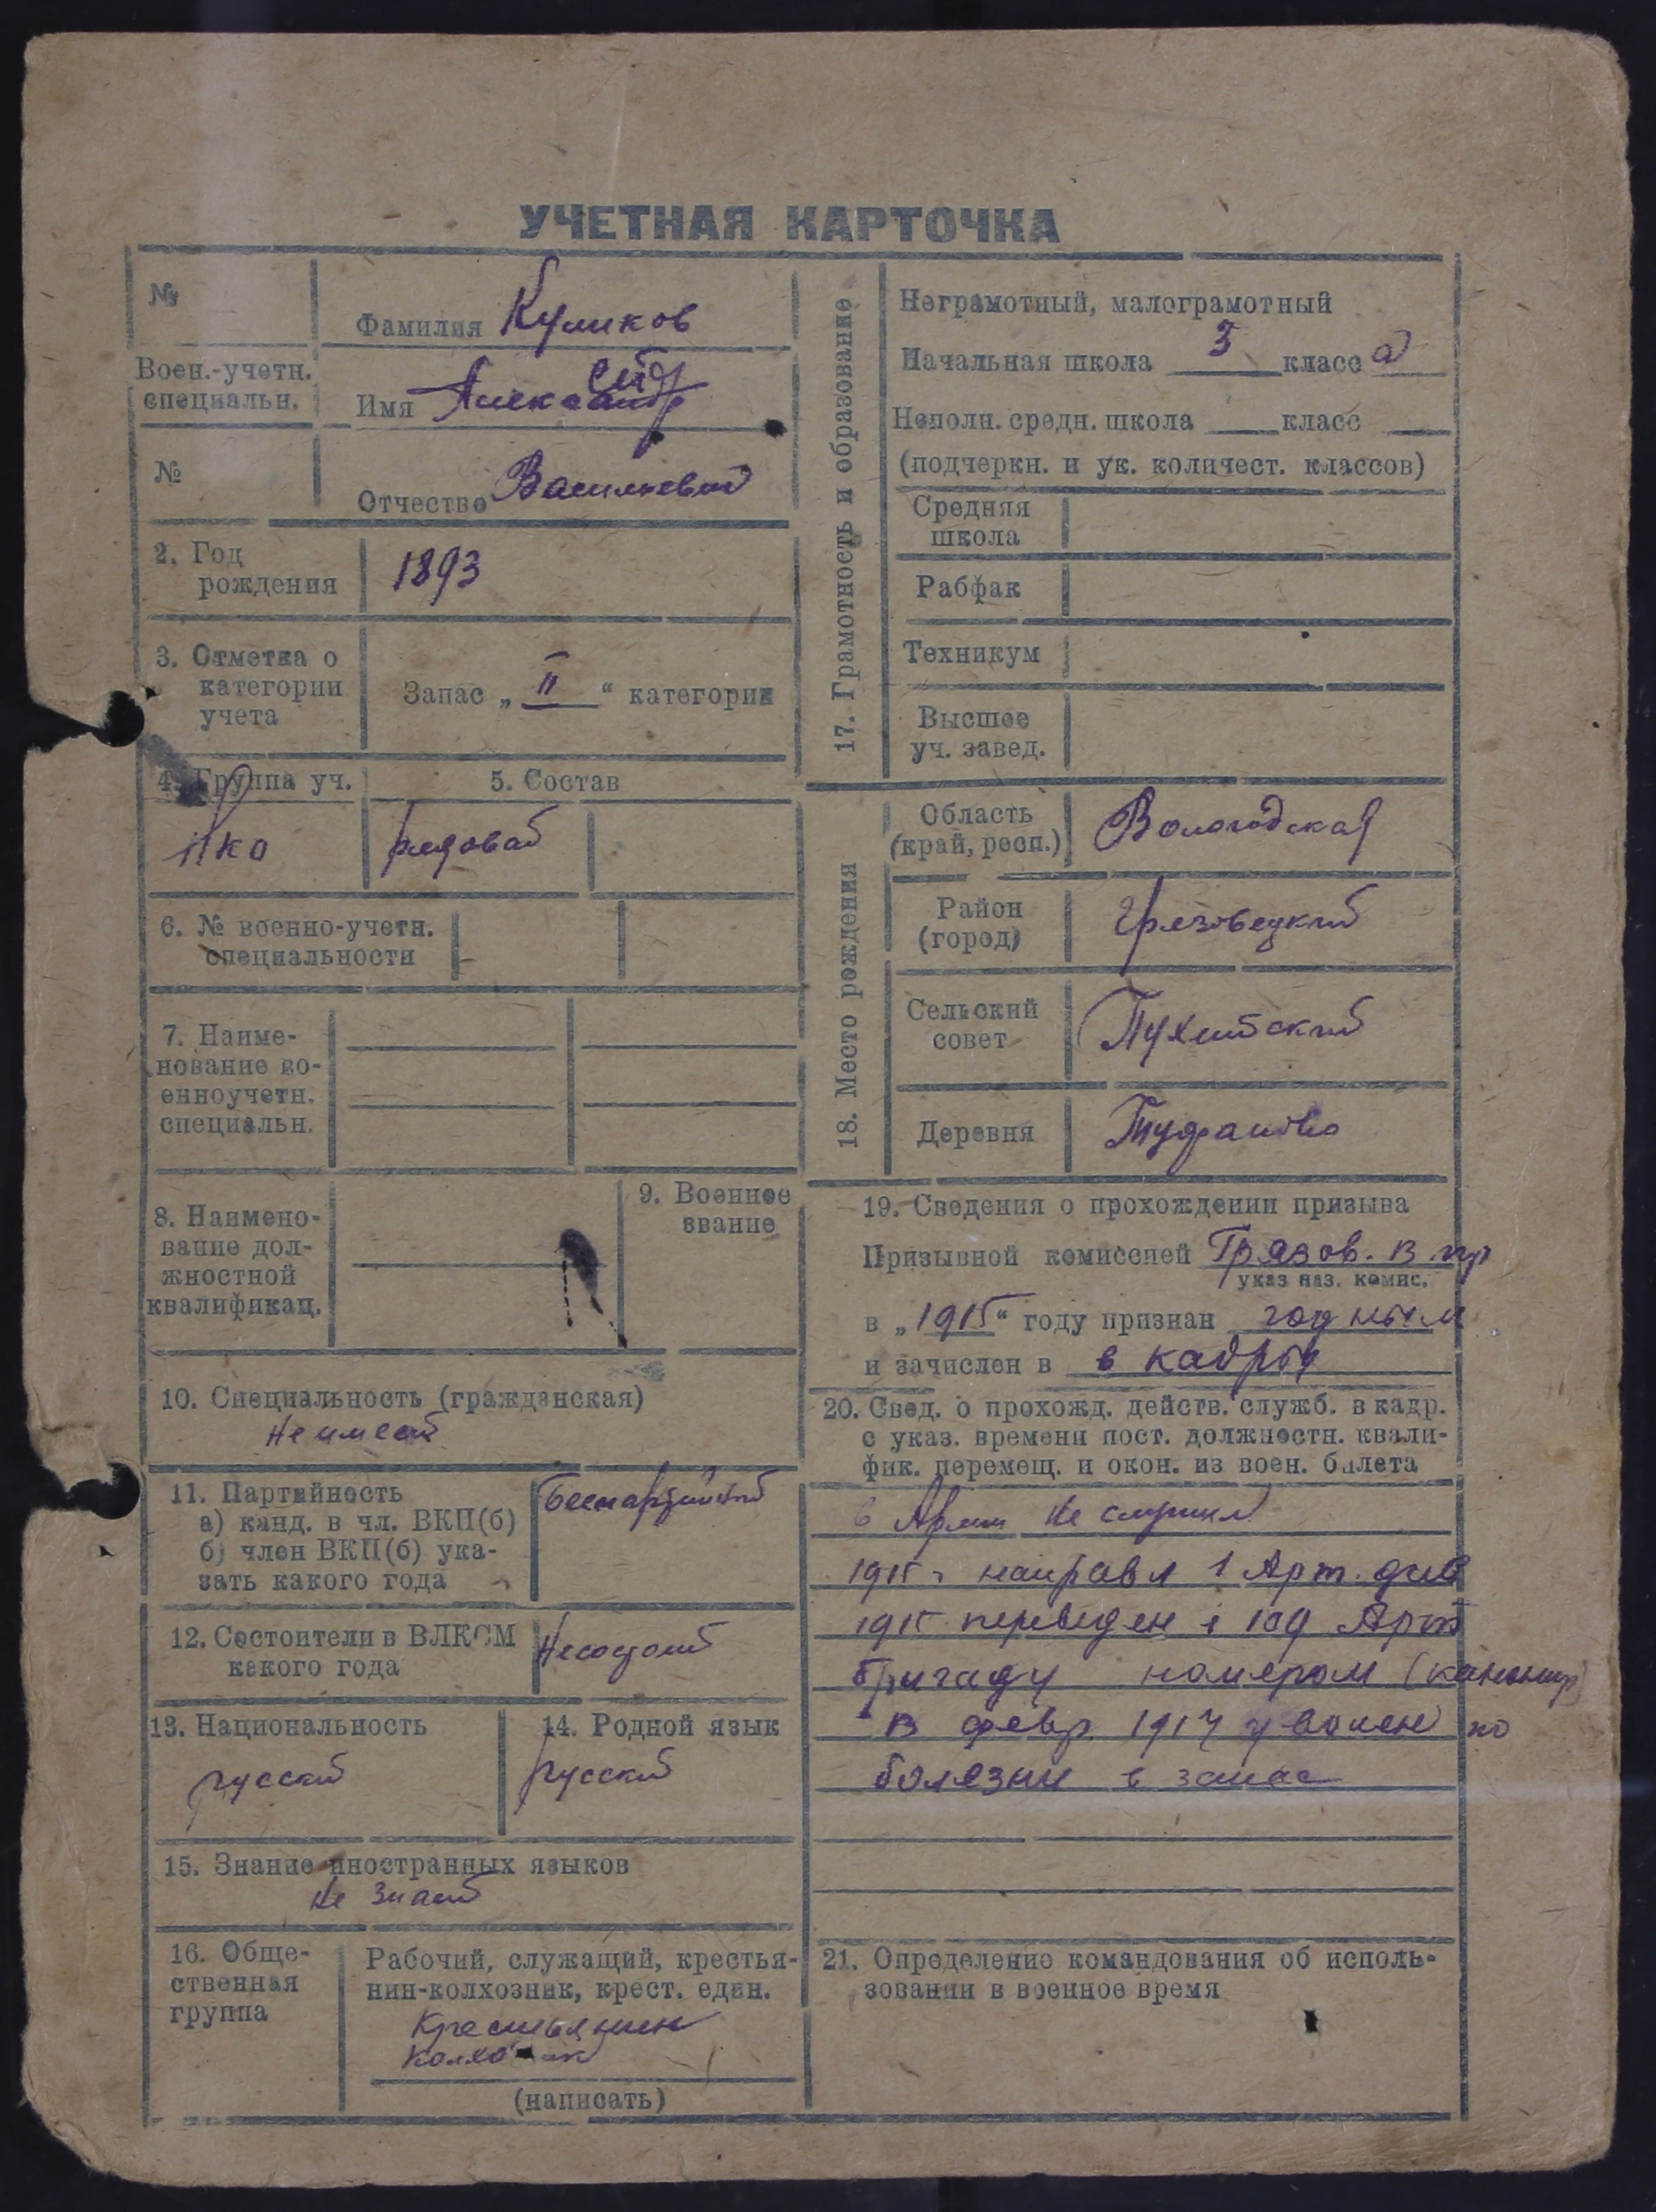 УЧЕТНАЯ КАРТОЧКА
№
Фамилия Куликов
Воен.-учетн.
специальн.
Имя Александр
№
Отчество Васильевич
2. Год
рождения
1893
3. Отметка о
категории
учета
Запас „ II “ категории
4. Группа уч.
5. Состав
рядовой
6. № военно-учетн.
специальности
7. Наиме-
нование во-
енноучетн.
специальн.
8. Наимено-
вание дол-
жностной
квалификац.
9. Военное
звание
10. Специальность (гражданская)
Не имеет
11. Партийность
а) канд. в чл. ВКП(б)
б) член ВКП(б) ука-
зать какого года
Беспартийный
12. Состоит ли в ВЛКСМ
какого года
Несостоит
13. Национальность
русский
14. Родной язык
русский
15. Знание иностранных языков
не знает
16. Обще-
ственная
группа
Рабочий, служащий, крестья-
нин-колхозник, крест. един.
Крестьянин
колхозник
(написать)
17. Грамотность и образование
Неграмотный, малограмотный
Начальная школа 3 класс а
Неполн. средн. школа класс
(подчеркн. и ук. количест. классов)
Средняя
школа
Рабфак
Техникум
Высшее
уч. завед.
18. Место рождения
Область
(край, респ.)
Вологодская
Район
(город)
Грязовецкий
Сельский
совет
Деревня
19. Сведения о прохождении призыва
Призывной комиссией Грязов. в. пр
указ наз. комис.
в „ 1915 “ году признан годным
и зачислен в в кадры
20. Свед. о прохожд. действ. служб. в кадр.
с указ. времени пост. должностн. квали-
фик. перемещ. и окон. из воен. билета
в Армии не служил
1915 г направл 1 Арт. див
1915 переведен 109 Арт
бригаду номером (канонир)
в февр. 1917 уволен по
болезни в запас
21. Определение командования об исполь-
зовании в военное время